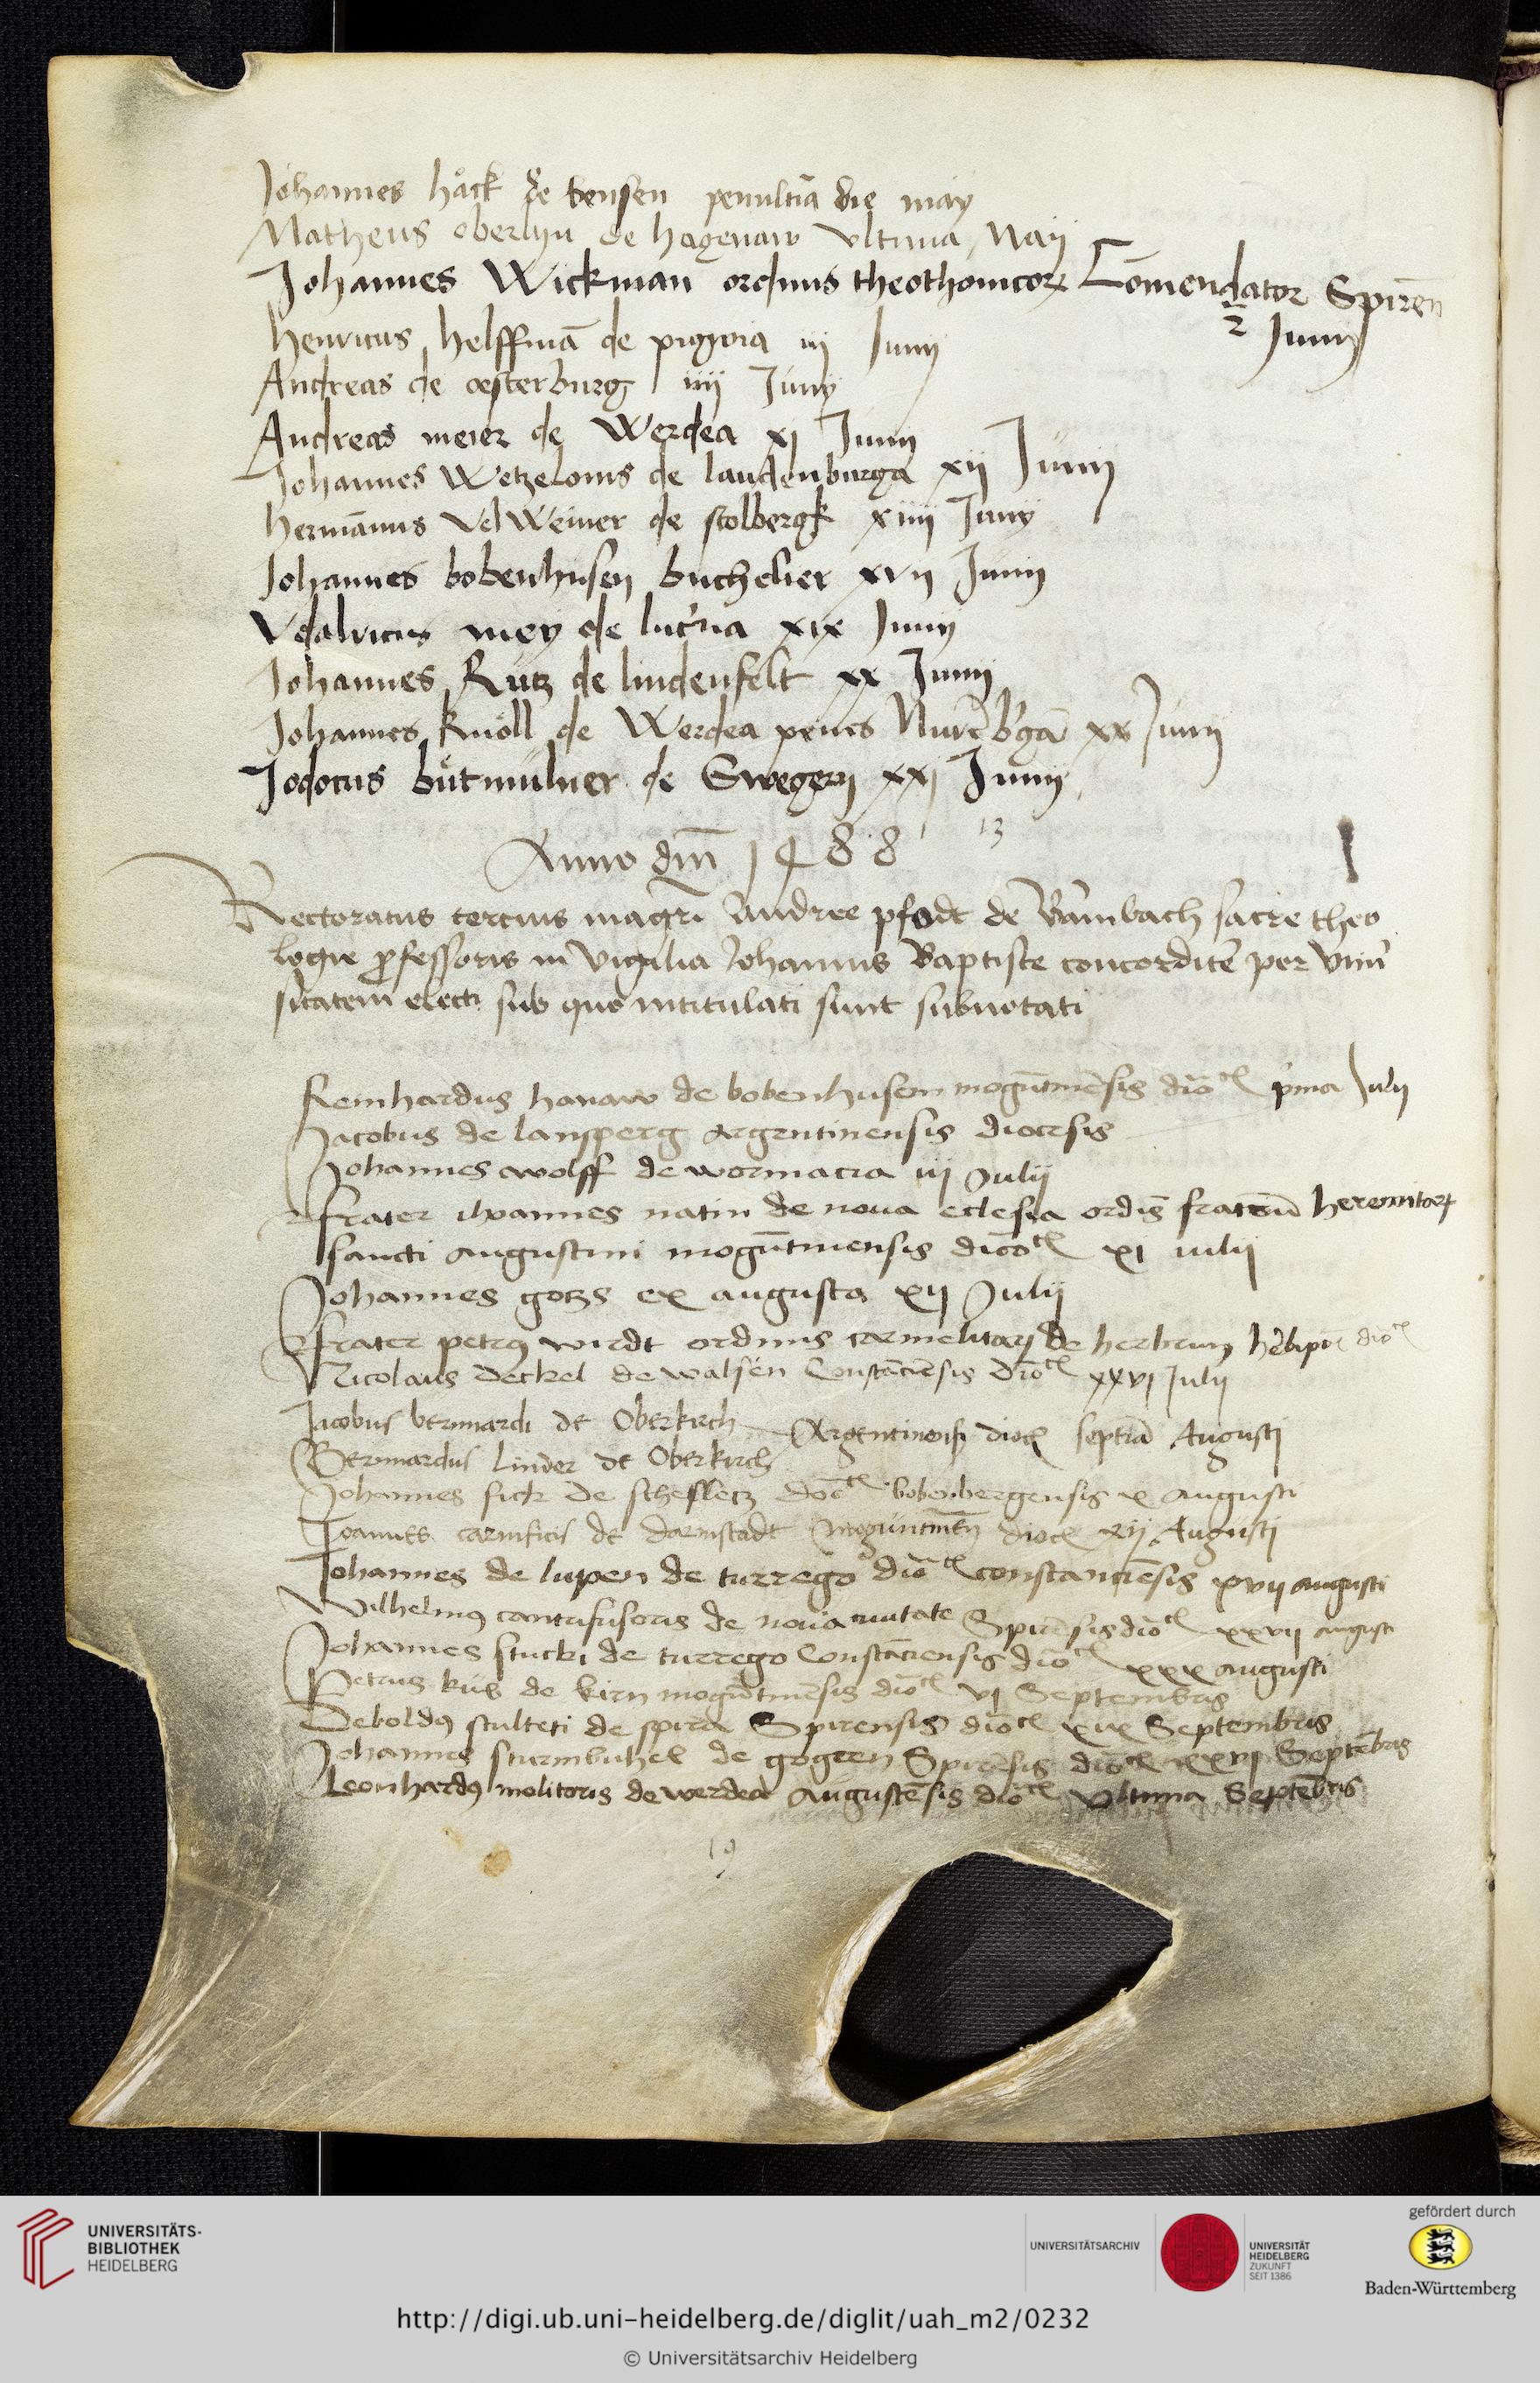 Johannes hack de bensen penultīa die may
Matheus oberlin de hagenaw vltima Maÿ
Johannes Wickman̄ ordinis theothonicorꝝ Cōmendator Spirēn
2 Junij
henricus helffmā de iij Junij
Andreas de oesterburg iiij Junij
Andreas meier de Werdea xj Junij
Johannes Wetzelonis de laudenburga xij Junij
hermānus VelWeiner de stolbergk xiiij Junij
Johannes bobenhusen buchelier xvij Junij
Vdalricus mey de lucr̄na xix Junij
Johannes Rütz de lindenfelt xx Junij
Johannes knöll de Werdea penes Nurēb'gā xx Junij
Jodocus bütmülner de Swegerÿ xxj Junij
Anno dn̄i 1488 13
Rectoratus tercius magr̄i Andree pfodt de Bambach sacre theo
logie ꝓfessoris in vigilia Johannis Baptiste concorditē per vniu
sitatem electi sub quo intitulati sunt subnotati
Reinhardus hanaw de bobenhusen mogūtinēsis dioc̄ p'ma Julij
Jacobus de lansperg argentinensis diocesis
Johannes wolff de wormacia iij Julij
frater iohannes natin de noua eclesia ordis̄ fratrū heremitarꝝ
sancti augustini mogūtinensis dioc̄ xi iulij
Johannes gotzs ex augusta xij Julij
frater petrꝰ wirdt ordinis carmelitarꝝ de herbipoł dioc̄
Nicolaus deckel de walsen Constāciēsis dioc̄ xxvj Julij
Jacobus bernnardi de Oberkirch Argentinensis dioc̄ septīa Augusti
Bernnardus Linder de Oberkirch
Johannes fick de schefletz dioc̄ bobenbergensis x augusti
Joannes carnificis de darmstadt Moguntineñ dioc̄ xij Augusti
Johannes de lupen de turrego dioc̄ constanciēsis xvij augusti
Wilhelmꝰ cantrifusoris de noua ciuitate Spirēsis dioc̄ xxvij augusti
Johannes stucki de turrego Constāciensis dioc̄ xxx augusti
Petrus küb de kirn mogūtinēsis dioc̄ vj Septembris
Deboldꝰ sculteti de spira Spirensis dioc̄ xix Septembris
Johannes sturmbuhel de gogren Spirēsis dioc̄ xxvj Septēbris
Leonhardꝰ molitoris de werdea augustēsis dioc̄ vltima Septēbris
19
UNIVERSITÄTS-
BIBLIOTHEK
HEIDELBERG
UNIVERSITÄTSARCHIV
UNIVERSITÄT
HEIDELBERG
ZUKUNFT
SEIT 1386
gefördert durch
Baden-Württemberg
http://digi.ub.uni-heidelberg.de/diglit/uah_m2/0232
© Universitätsarchiv Heidelberg